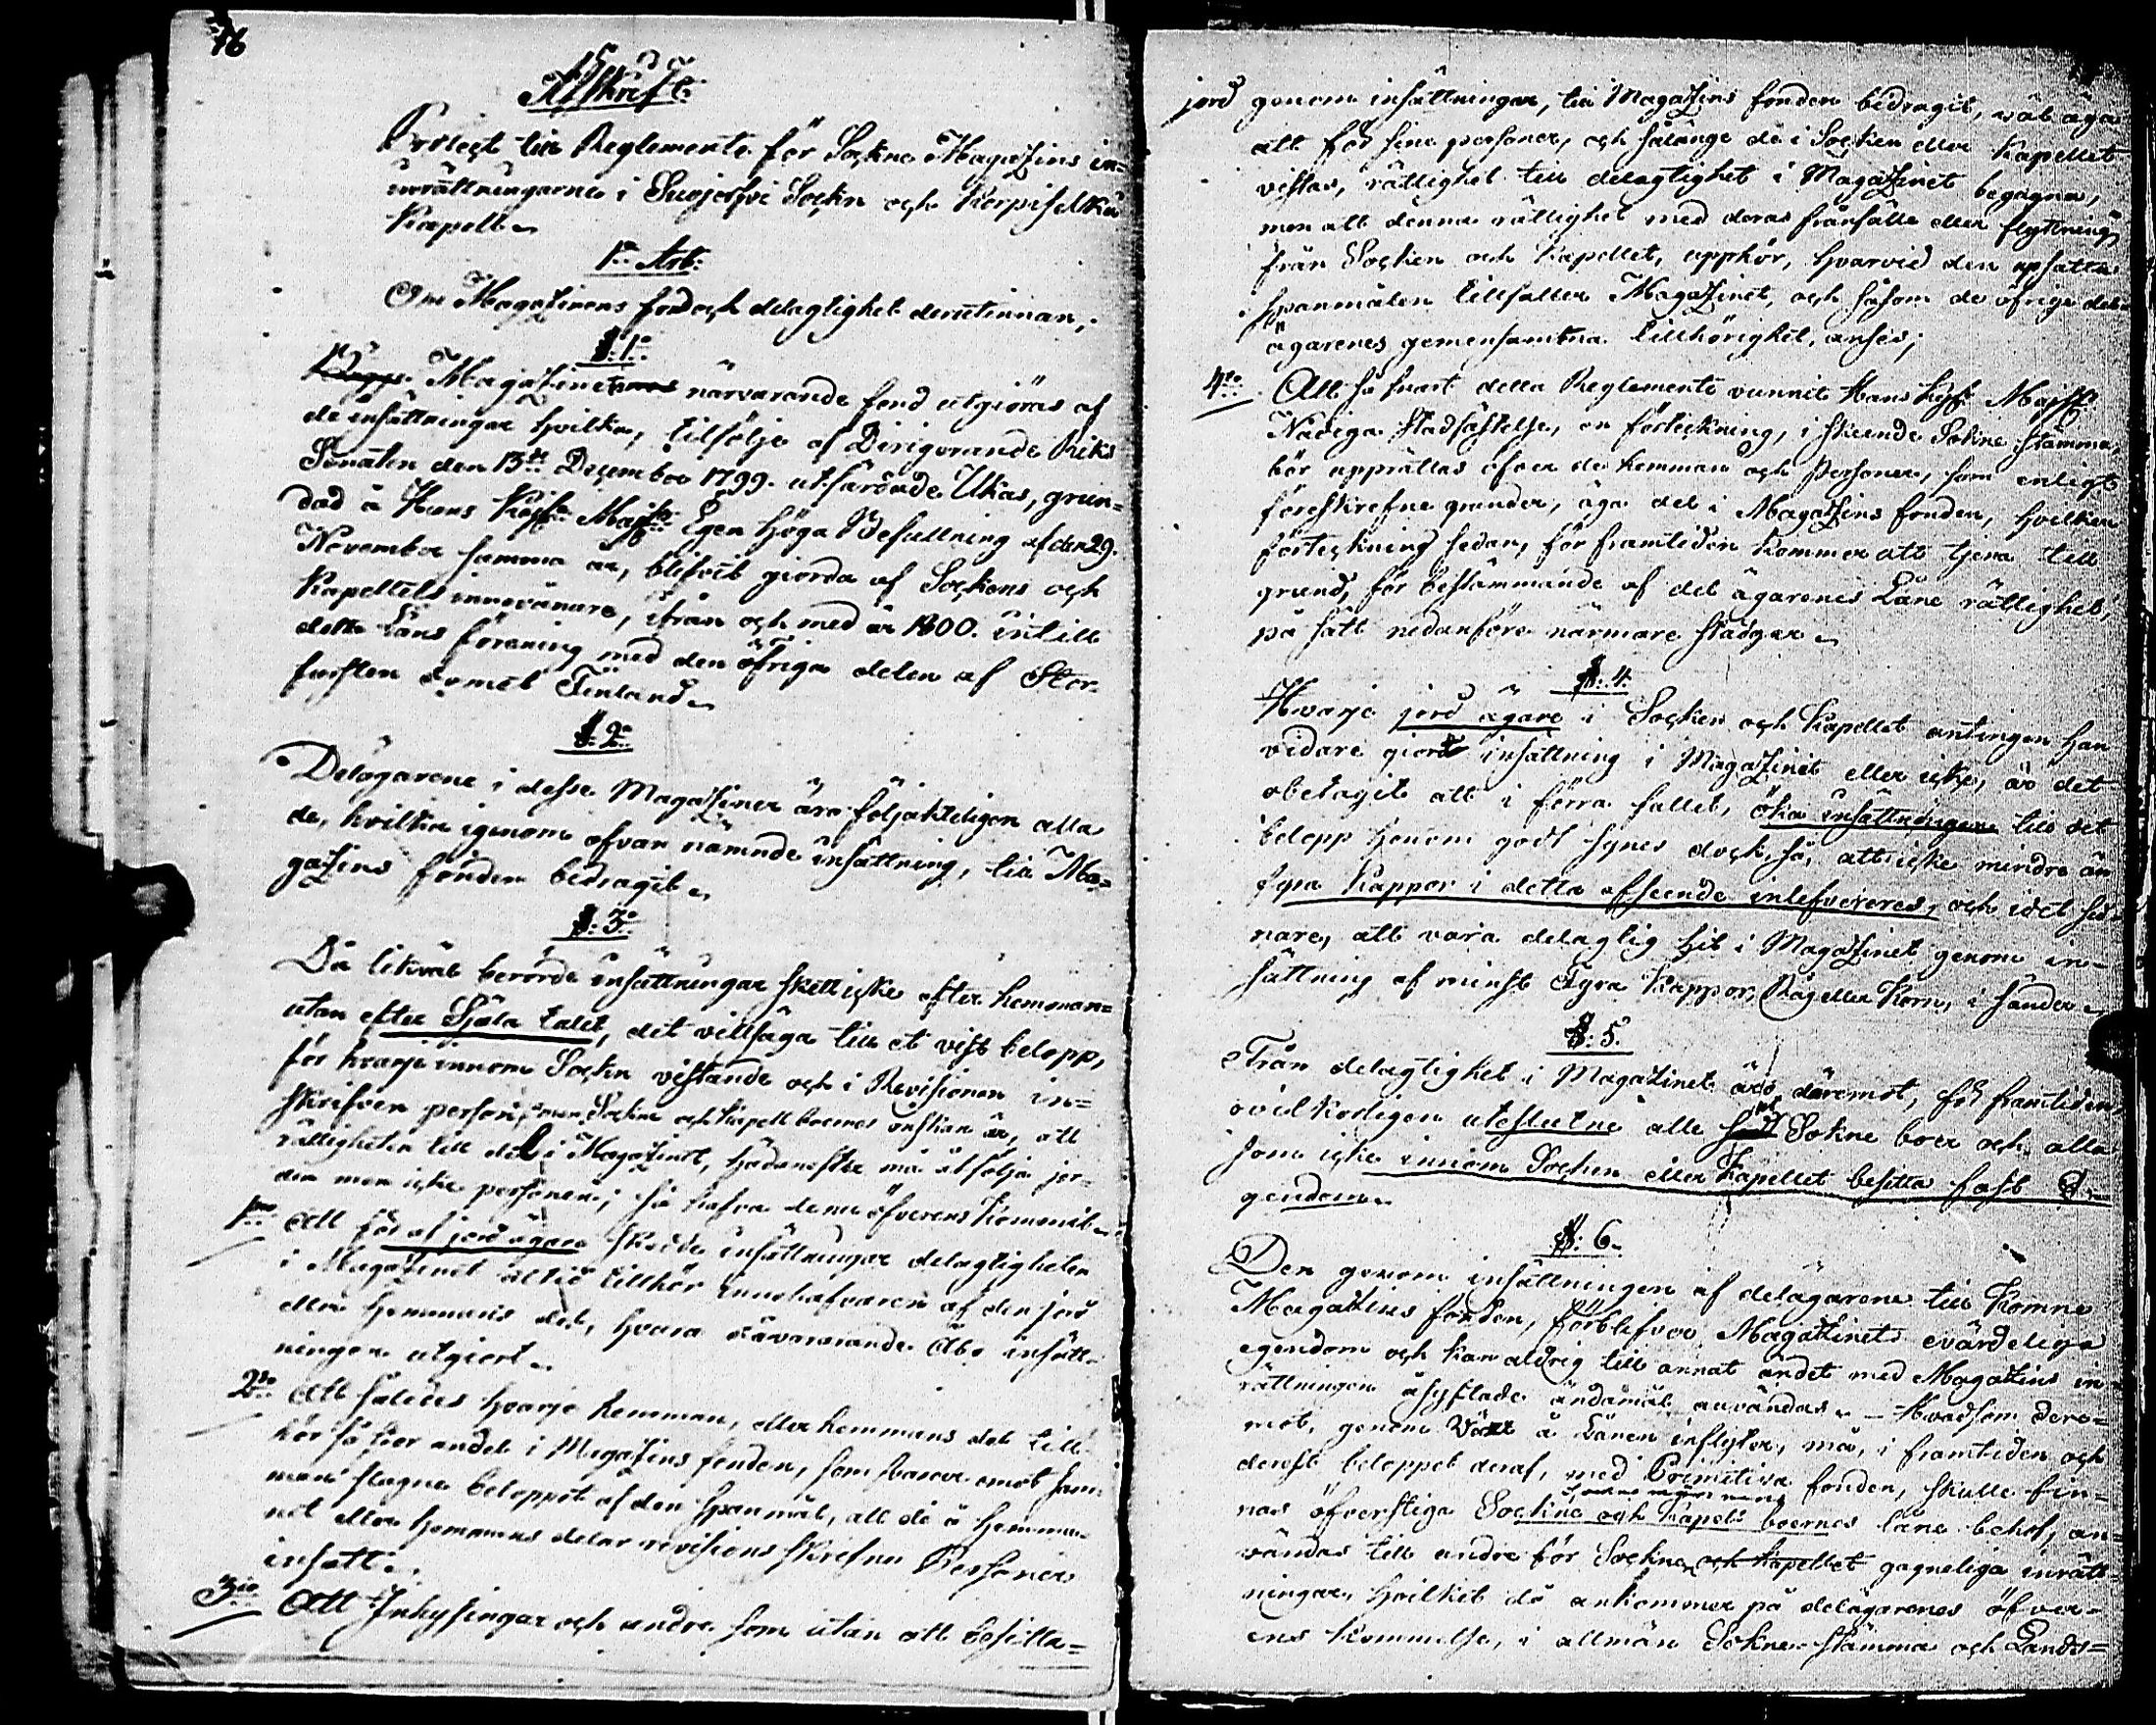 16
Afskrift
Project till Reglemente för Sockne Magazins in-
inrättningarne i Suojerfvi Sockn och Korpiselkä
Kapell
1o Art:
Om Magazinens fond och delagtighet derutinnan,
§: 1o
Magazinets närvarande fond utgiöras af
de insättningar hvilka, tilfölje af Dirigerande Riks
Senaten den 13de December 1799. utfärdade Ukas, grun-
dad å Hans Kejs: Maj:ts Egen höga Befallning af den 29.
November samma år, blifvit giorda af Sockens och
Kapellets innevånare, ifrån och med år 1800. intill
dette Läns förening med den öfriga delen af Stor-
furstendömet Finland
§: 2o
Delägarene i desse Magaziner äro följakteligen alla
de, hvilka igenom ofvan nämnde insättning, till Ma-
gazins fonden bidragit
§: 3o
Då likväl berörde insättningar skett icke efter hemman-
utan efter Själa talet, det vill säga till et visst belopp,
för hvarje innom Sockn vistande och i Revisionen in-
skrifven person, men Sockne och Kapell boernes önskan är, att
rättigheten till del i Magazinet, hädanefter må åtfölja jor-
den men icke personen; så hafva de nu öfverens kommit
1mo Att för af jord ägare skedde insättningar delagtigheten
i Magazinet altid tillhör innehafvaren af den jord
eller hemmans del, hvars dåvarande Åbo insätt-
ningen utgiort
2do Att således hvarje hemman, eller hemmans del till
hör så stor andel i Magazins fonden, som svarar emot sam-
man slagne beloppet af den spanmål, all de å hemma-
net eller hemmans delar revisions skrefne Personer
insatt.
3tio Att Inhysingar och andre som utan att besitta-
jord genom insättningar, till Magazins fonden bidragit, väl äga
att för sine personer, och sålänge de i Socken eller Kapellet
vistas, rättighet till delagtighet i Magazinet begagna,
men att denna rättighet med deras frånfälle eller flyttning
från Socken och Kapellet, upphör, hvarvid den insatte
spanmålen tillfaller Magazinet, och såsom de öfrige del-
ägarenes gemensamma tillhörighet, anses;
4to Att så snart detta Reglemente vunnit Hans Kejs: Maj:ts
Nådiga Stadfästelse, en förteckning, i skeende Sokne stämma,
bör upprättas öfver de hemman och Personer, som enligt
föreskrefne grunder, äga del i Magazins fonden, hvilken
förteckning sedan, för framtiden kommer att tjena till
grund, för bestämmande af del ägarenes Låne rättighet,
på sätt nedanföre närmare stadgas
§: 4.
Hvarje jord ägare i Socken och Kapellet antingen han
vidare giordt insättning i Magazinet eller icke, är det
obetagit att i förra fallet, öka insättningen till det
belopp honom godt synes dock så, att icke mindre än
fyra Kappor i detta afseende inlefvereres, och i det sed-
nare, att vara delagtig hit i Magazinet genom in-
sättning af minst Fyra Kappor, Råg eller Korn, i sänder
§: 5.
Från delagtighet i Magazinet äro däremot, för framtiden
ovilkorligen uteslutne alle Sokne boer och alla
som icke innom Socken eller Kapellet besitta fast E-
gendom
§: 6.
Den genom insättningen af delägarene till komne
Magazins fonden, förblifver Magazinets evärdeliga
egendom och kan aldrig till annat ändet med Magazins in-
rättningen åsyftade ändamål användas. – Hvad som dere-
mot, genom Växt å Lånen inflyter, må, i framtiden och
derest beloppet deraf, med Primitiva fonden, skulle fin-
nas öfverstiga Sockne och Kapels boernes låne behof, an-
vändas till andre för Sockne och Kapellet gagneliga inrätt-
ningar, hvilket då ankommer på delägarenes öfver-
ens kommelse, i allmän Sokne stämma och Lands-